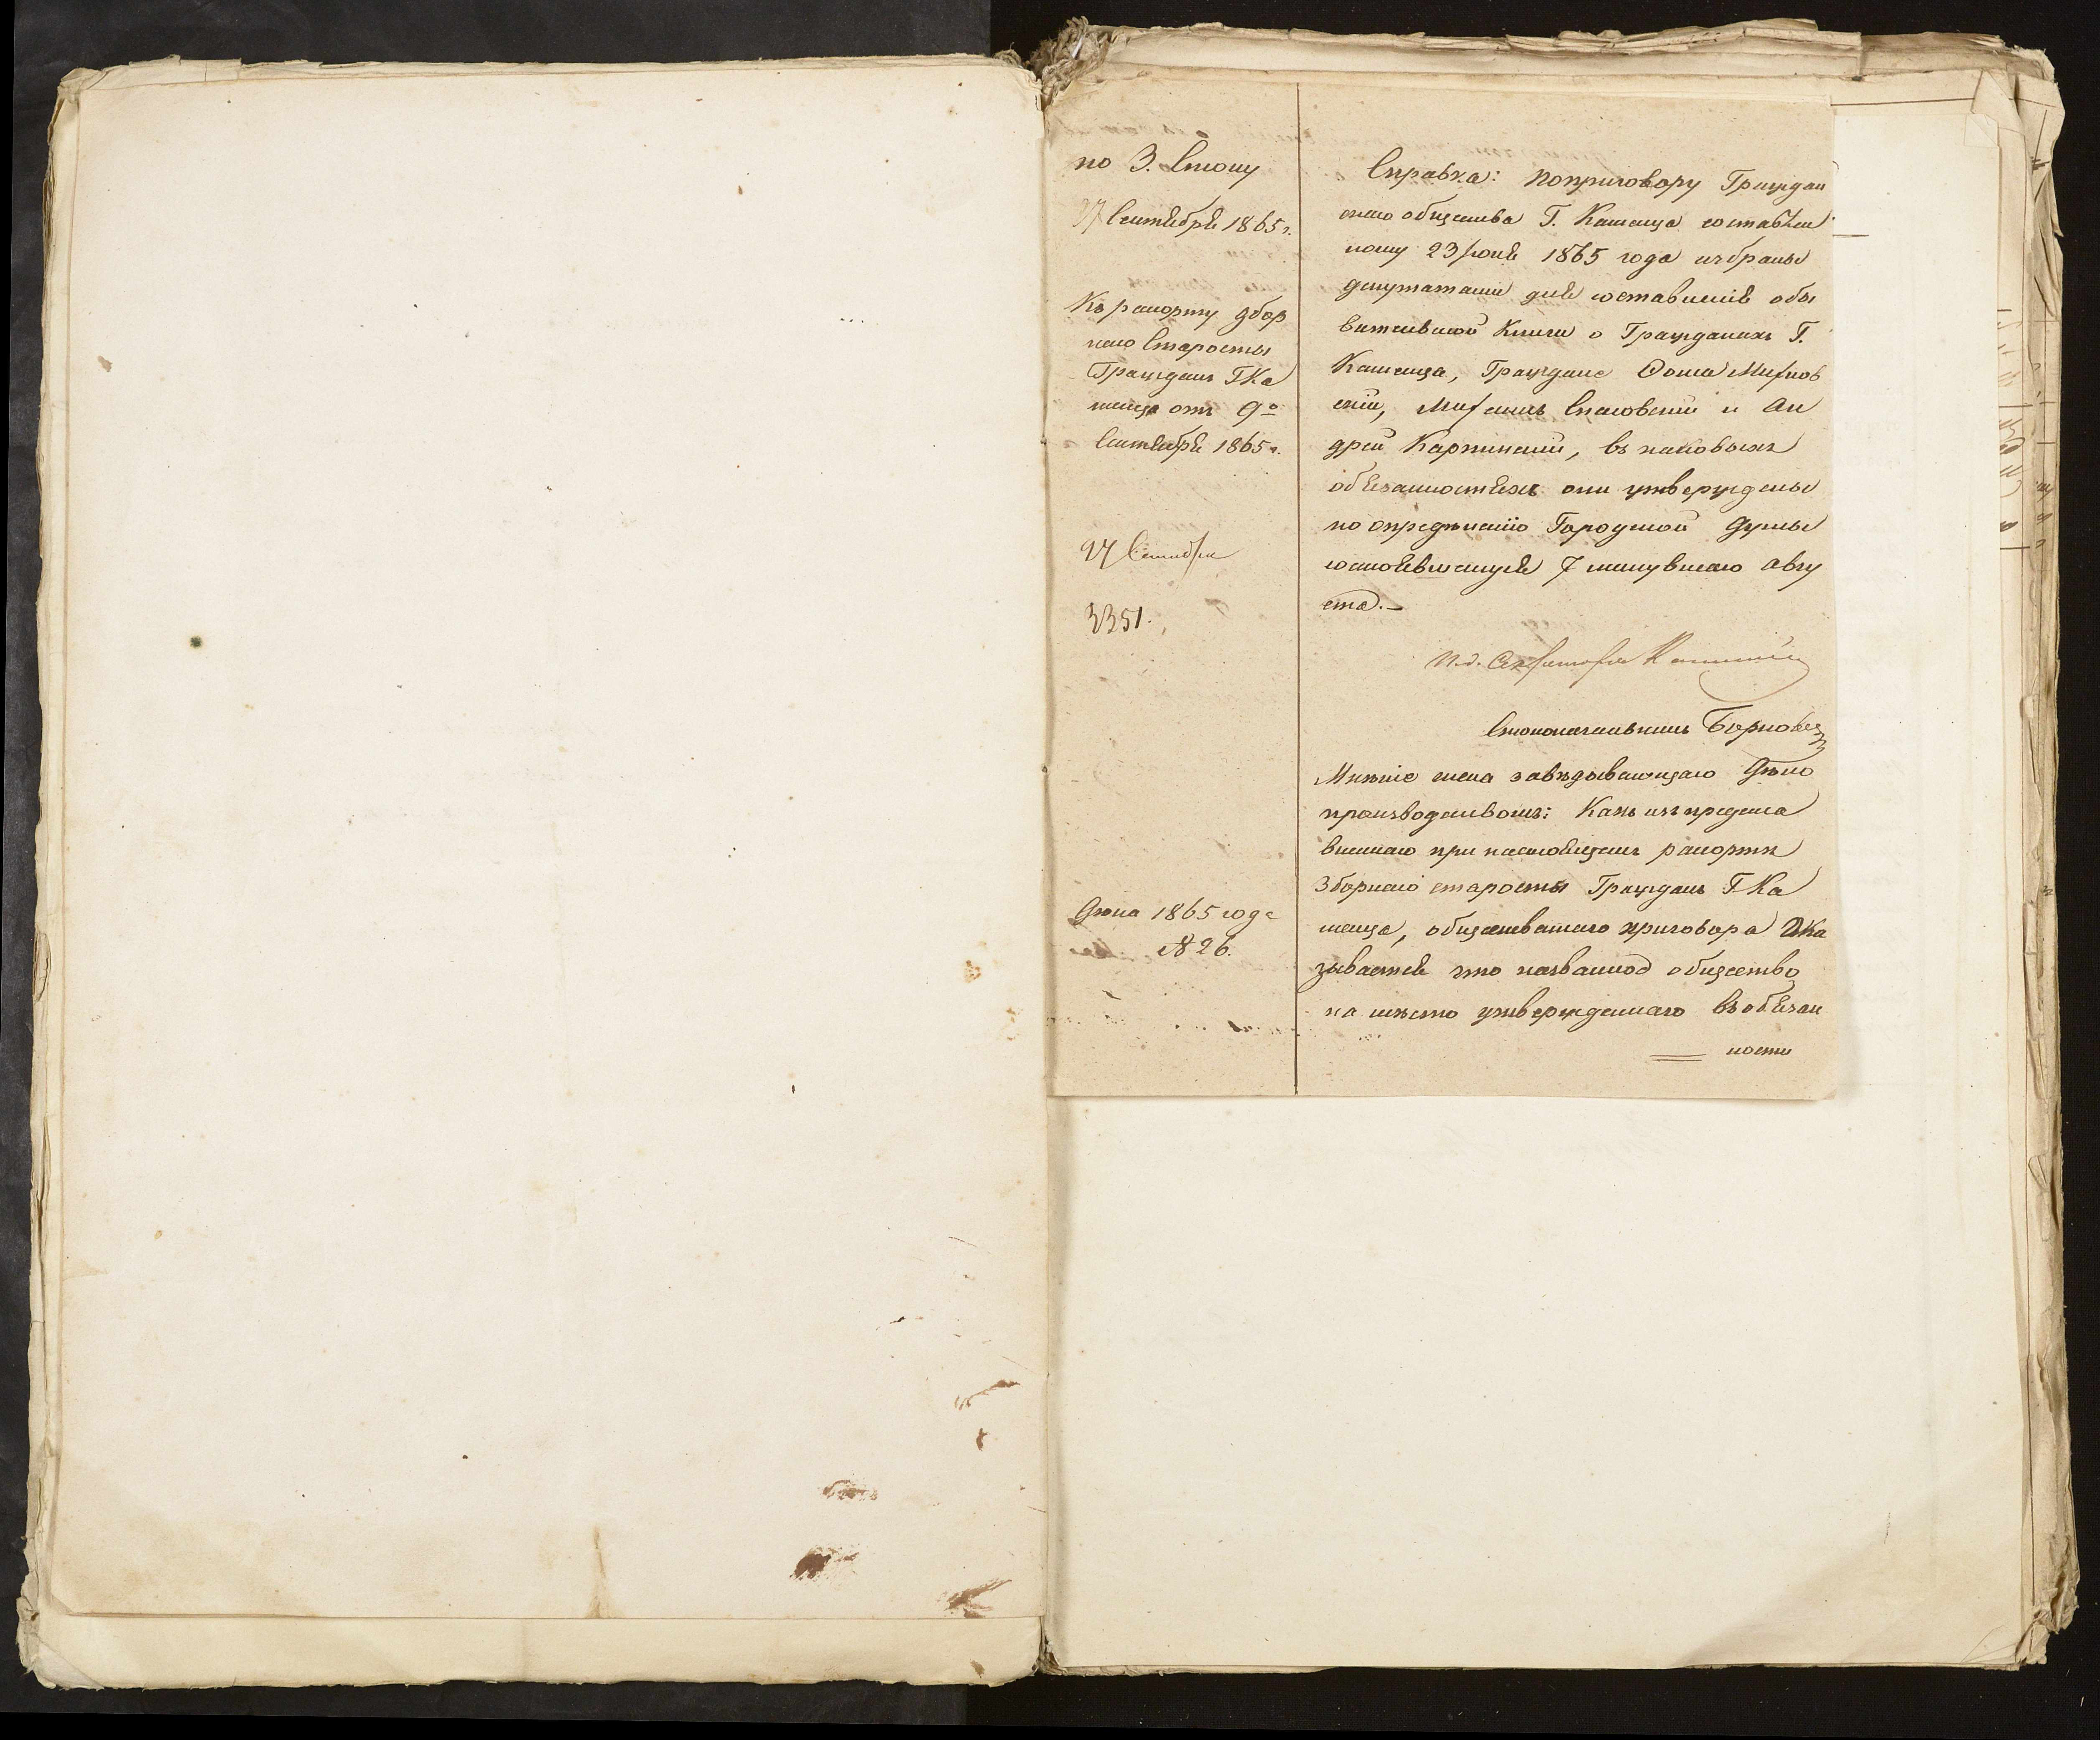 по 3. Столу
27 Сентября 1865 г.
Къ рапорту Збор
наго Старосты
Гражданъ Г Ка
менца отъ 9го
Сентября 1865 г.
27 Сентября
3351.
Дѣла 1865 года
№ 26.
Справка: По приговору Граждан
скаго общества Г. Каменца составлен
ному 23 Іюня 1865 года избраны
депутатами для составленія обы
вательской Книги о Гражданахъ Г.
Каменца, Граждане Фома
скій, Михаилъ и Ан
дрей, въ каковыхъ
обязанностяхъ они утверждены
по опредѣленію Городской Думы
состоявшемуся 7 минувшаго Авгу
ста.—
И.д. Секретаря
Столоначальникъ
Мнѣніе члена завѣдывающаго Дѣло
производствомъ: Какъ изъ предста
вленнаго при настоящемъ рапортѣ
Зборнаго старосты Гражданъ Г. Ка
менца, общественнаго приговора Ока
зывается что названное общество
на мѣсто утвержденнаго въ обязан
ности